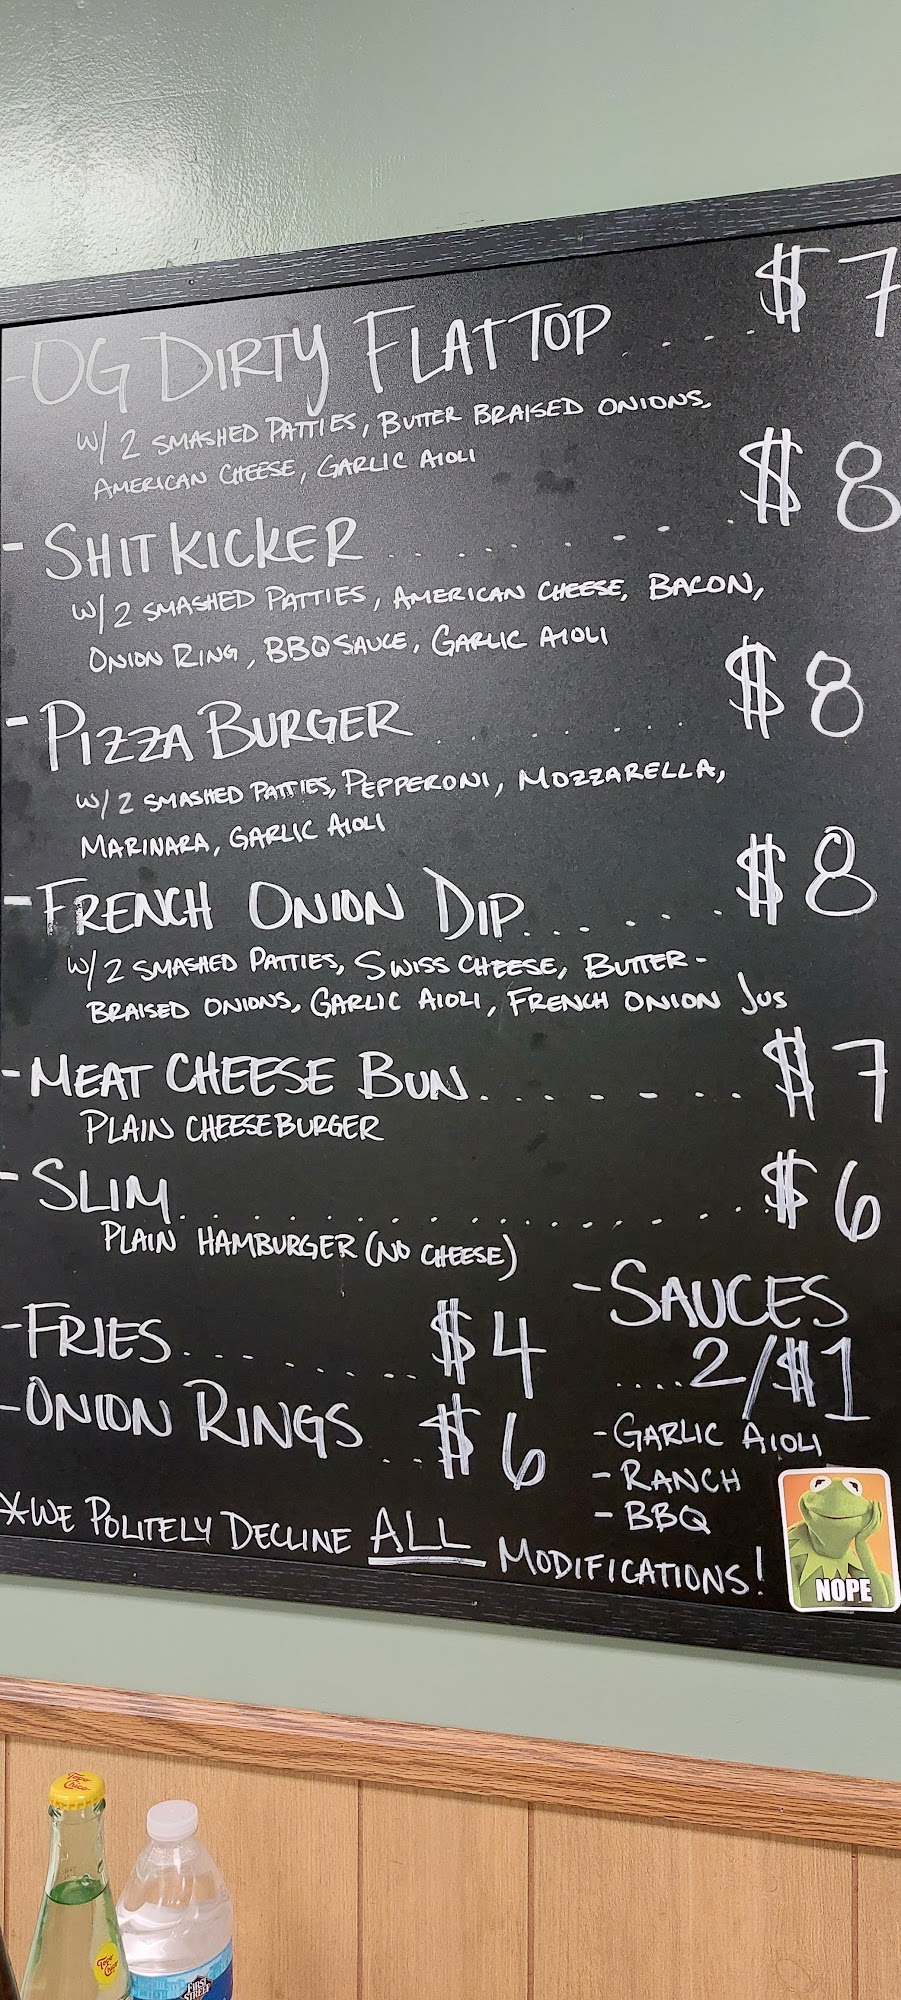 -OG DIRTY FLATTOP ..... $7
W/ 2 SMASHED PATTIES, BUTTER BRAISED ONIONS,
AMERICAN CHEESE, GARLIC AIOLI
- SHITKICKER ......... $8
W/ 2 SMASHED PATTIES, AMERICAN CHEESE, BACON,
ONION RING, BBQ SAUCE, GARLIC AIOLI
- PIZZA BURGER ......... $8
W/ 2 SMASHED PATTIES, PEPPERONI, MOZZARELLA,
MARINARA, GARLIC AIOLI
- FRENCH ONION DIP ...... $8
W/ 2 SMASHED PATTIES, SWISS CHEESE, BUTTER-
BRAISED ONIONS, GARLIC AIOLI, FRENCH ONION JUS
- MEAT CHEESE BUN ........ $7
PLAIN CHEESEBURGER
- SLIM ............... $6
PLAIN HAMBURGER (NO CHEESE)
- FRIES ........ $4
- ONION RINGS ... $6
- SAUCES
.... 2/$1
- GARLIC AIOLI
- RANCH
- BBQ
*WE POLITELY DECLINE ALL MODIFICATIONS!
NOPE
Topo Chico
Topo Chico
FIRST
STREET